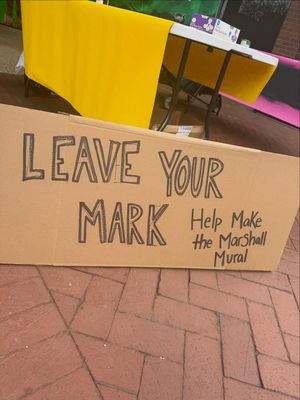 LEAVE YOUR
MARK
Help Make
the Marshall
Mural